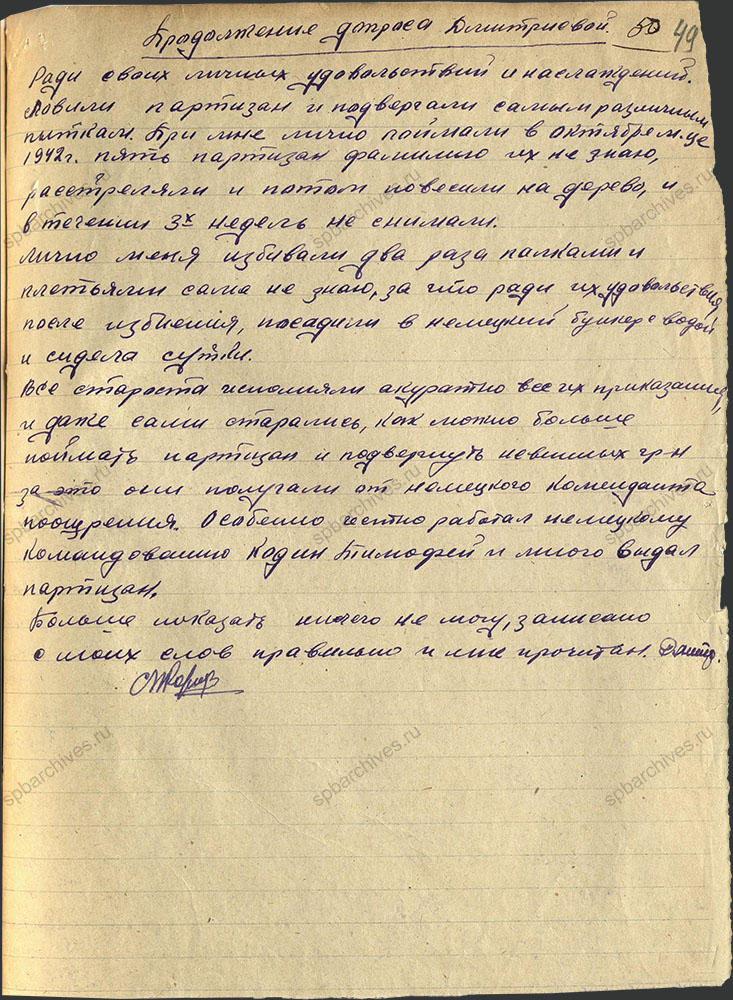 Продолжение допроса Дмитриевой.
50 49
Ради своих личных удовольствий и наслаждений.
Ловили партизан и подвергали самым различным
пыткам. При мне лично поймали в октябрем-це
1942 г. пять партизан фамилию их не знаю,
расстреляли и потом повесили на дерево, и
в течении 3х недель не снимали.
лично меня избивали два раза палками и
плетьями сама не знаю, за что ради их удовольствия,
после избиения, посадили в немецкий бункер с водой
и сидела сутки.
Все староста исполняли акуратно все их приказания,
и даже сами старались, как можно больше
поймать партизан и подвергнуть невинных гр-н
за это они получали от немецкого коменданта
поощрения. Особенно честно работал немецкому
командованию Кодин Тимофей и много выдал
партизан.
Больше показать ничего не могу, записано
с моих слов правильно и мне прочитан. Дмитр.
spbarchives.ru
spbarchives.ru
spbarchives.ru
spbarchives.ru
spbarchives.ru
spbarchives.ru
spbarchives.ru
spbarchives.ru
spbarchives.ru